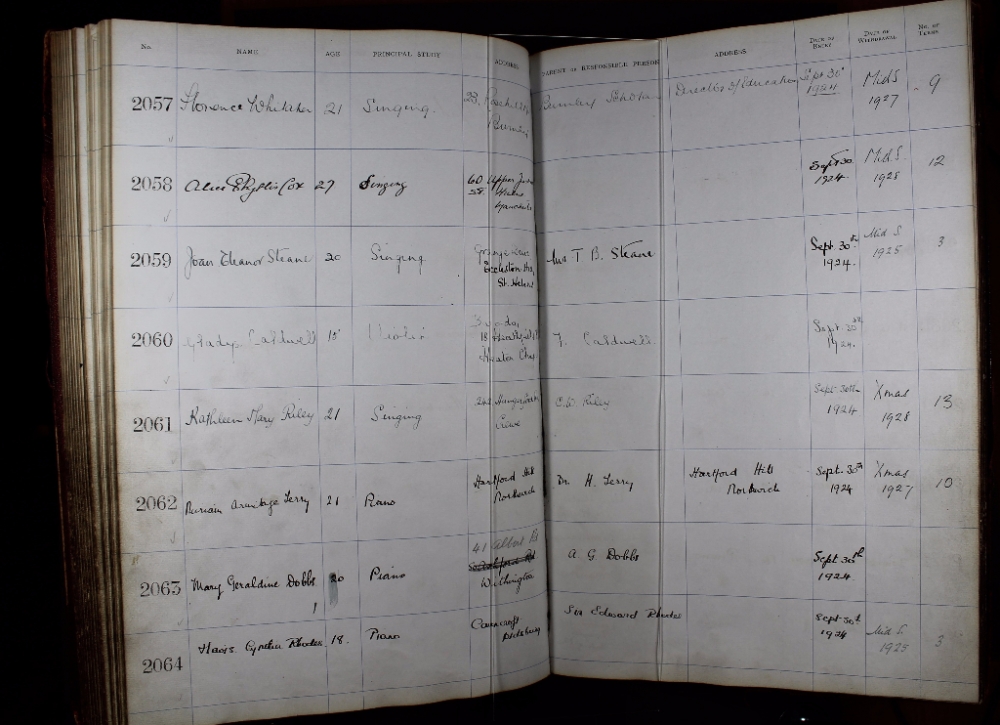 No. NAME AGE PRINCIPAL STUDY ADDRESS PARENT or RESPONSIBLE PERSON ADDRESS DATE OF ENTRY DATE OF WITHDRAWAL No. OF TERMS
2057 Florence Whitaker 21 Singing. 23, Director of Education Sept 30th 1924 Mid S 1927 9
2058 Alice Phyllis Cox 27 Singing 60 Upper Sept 30 1924 Mid. S. 1928 12
2059 Joan Eleanor Steane 20 Singing Eccleston St. Helens T B. Steane Sept. 30th 1924. Mid S 1925 3
2060 Gladys Caldwell 15 Violin 18 Heaton Chapel Caldwell Sept. 30th 1924.
2061 Kathleen Mary Riley 21 Singing Crewe Riley Sept 30th 1924 Xmas 1928 13
2062 Armitage Terry 21 Piano Hartford Hill Norwich Dr. H. Terry Hartford Hill Sept. 30th 1924 Xmas 1927 10
2063 Mary Geraldine Dobbs 20 Piano 41 Albert Rd Withington A. G. Dobbs Sept 30th 1924
2064 Cynthia Rhodes 18. Piano Didsbury Sir Edward Rhodes Sept 30th 1924 Mid S 1925 3